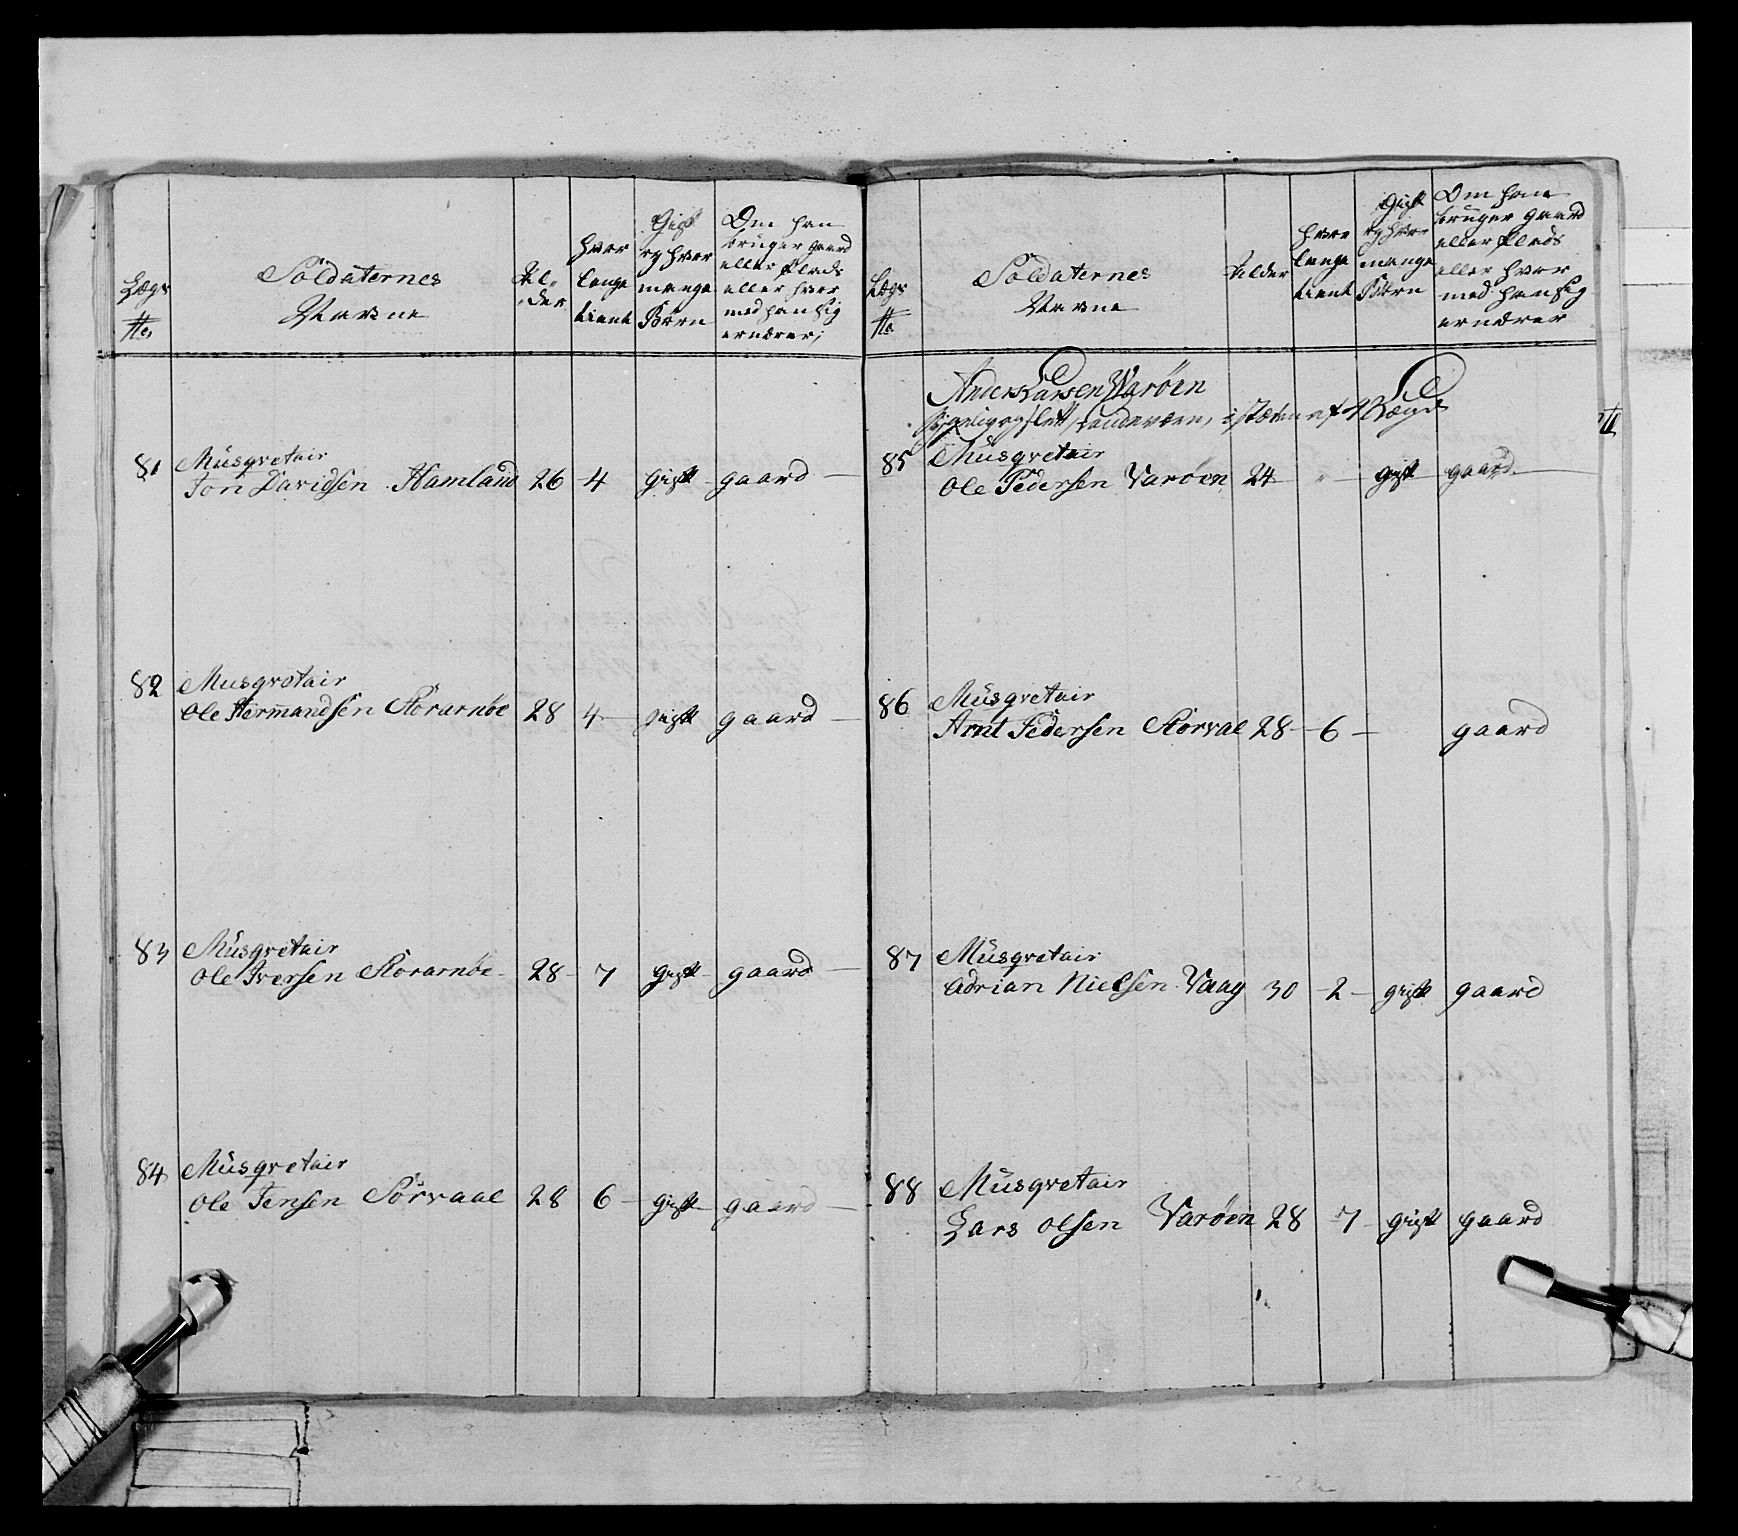 Lægs
No
Soldaternes
Navne
Al-
-der
hvor
lenge
tient
Gift
og hvor
mange
Börn
Om han
bruger gaard
eller Plads
eller hvor
med han sig
ernærer;
81 Musqvetair
Jon Davidsen Hamland 26 4 gift gaard
82 Musqvetair
Ole Hermandsen Storarnöe 28 4 gift gaard
83 Musqvetair
Ole Iversen Storarnöe 28 7 gift gaard
84 Musqvetair
Ole Jensen Sörvaae 28 6 gift gaard
Lægs
No
Soldaternes
Navne
Alder
hvor
lenge
tient
Gift
og hvor
mange
Börn
Om han
bruger gaard
eller Plads
eller hvor
med han sig
ernærer
Anders Larsen Waröen
Landeværn, i steden af
85 Musqvetair
Ole Pedersen Varöen 24 " gift gaard
86 Musqvetair
Arnt Pedersen Storval 28 6 gaard
87 Musqvetair
Adrian Nielsen Vaag 30 2 gift gaard
88 Musqvetair
Lars Olsen Varöen 28 7 gift gaard